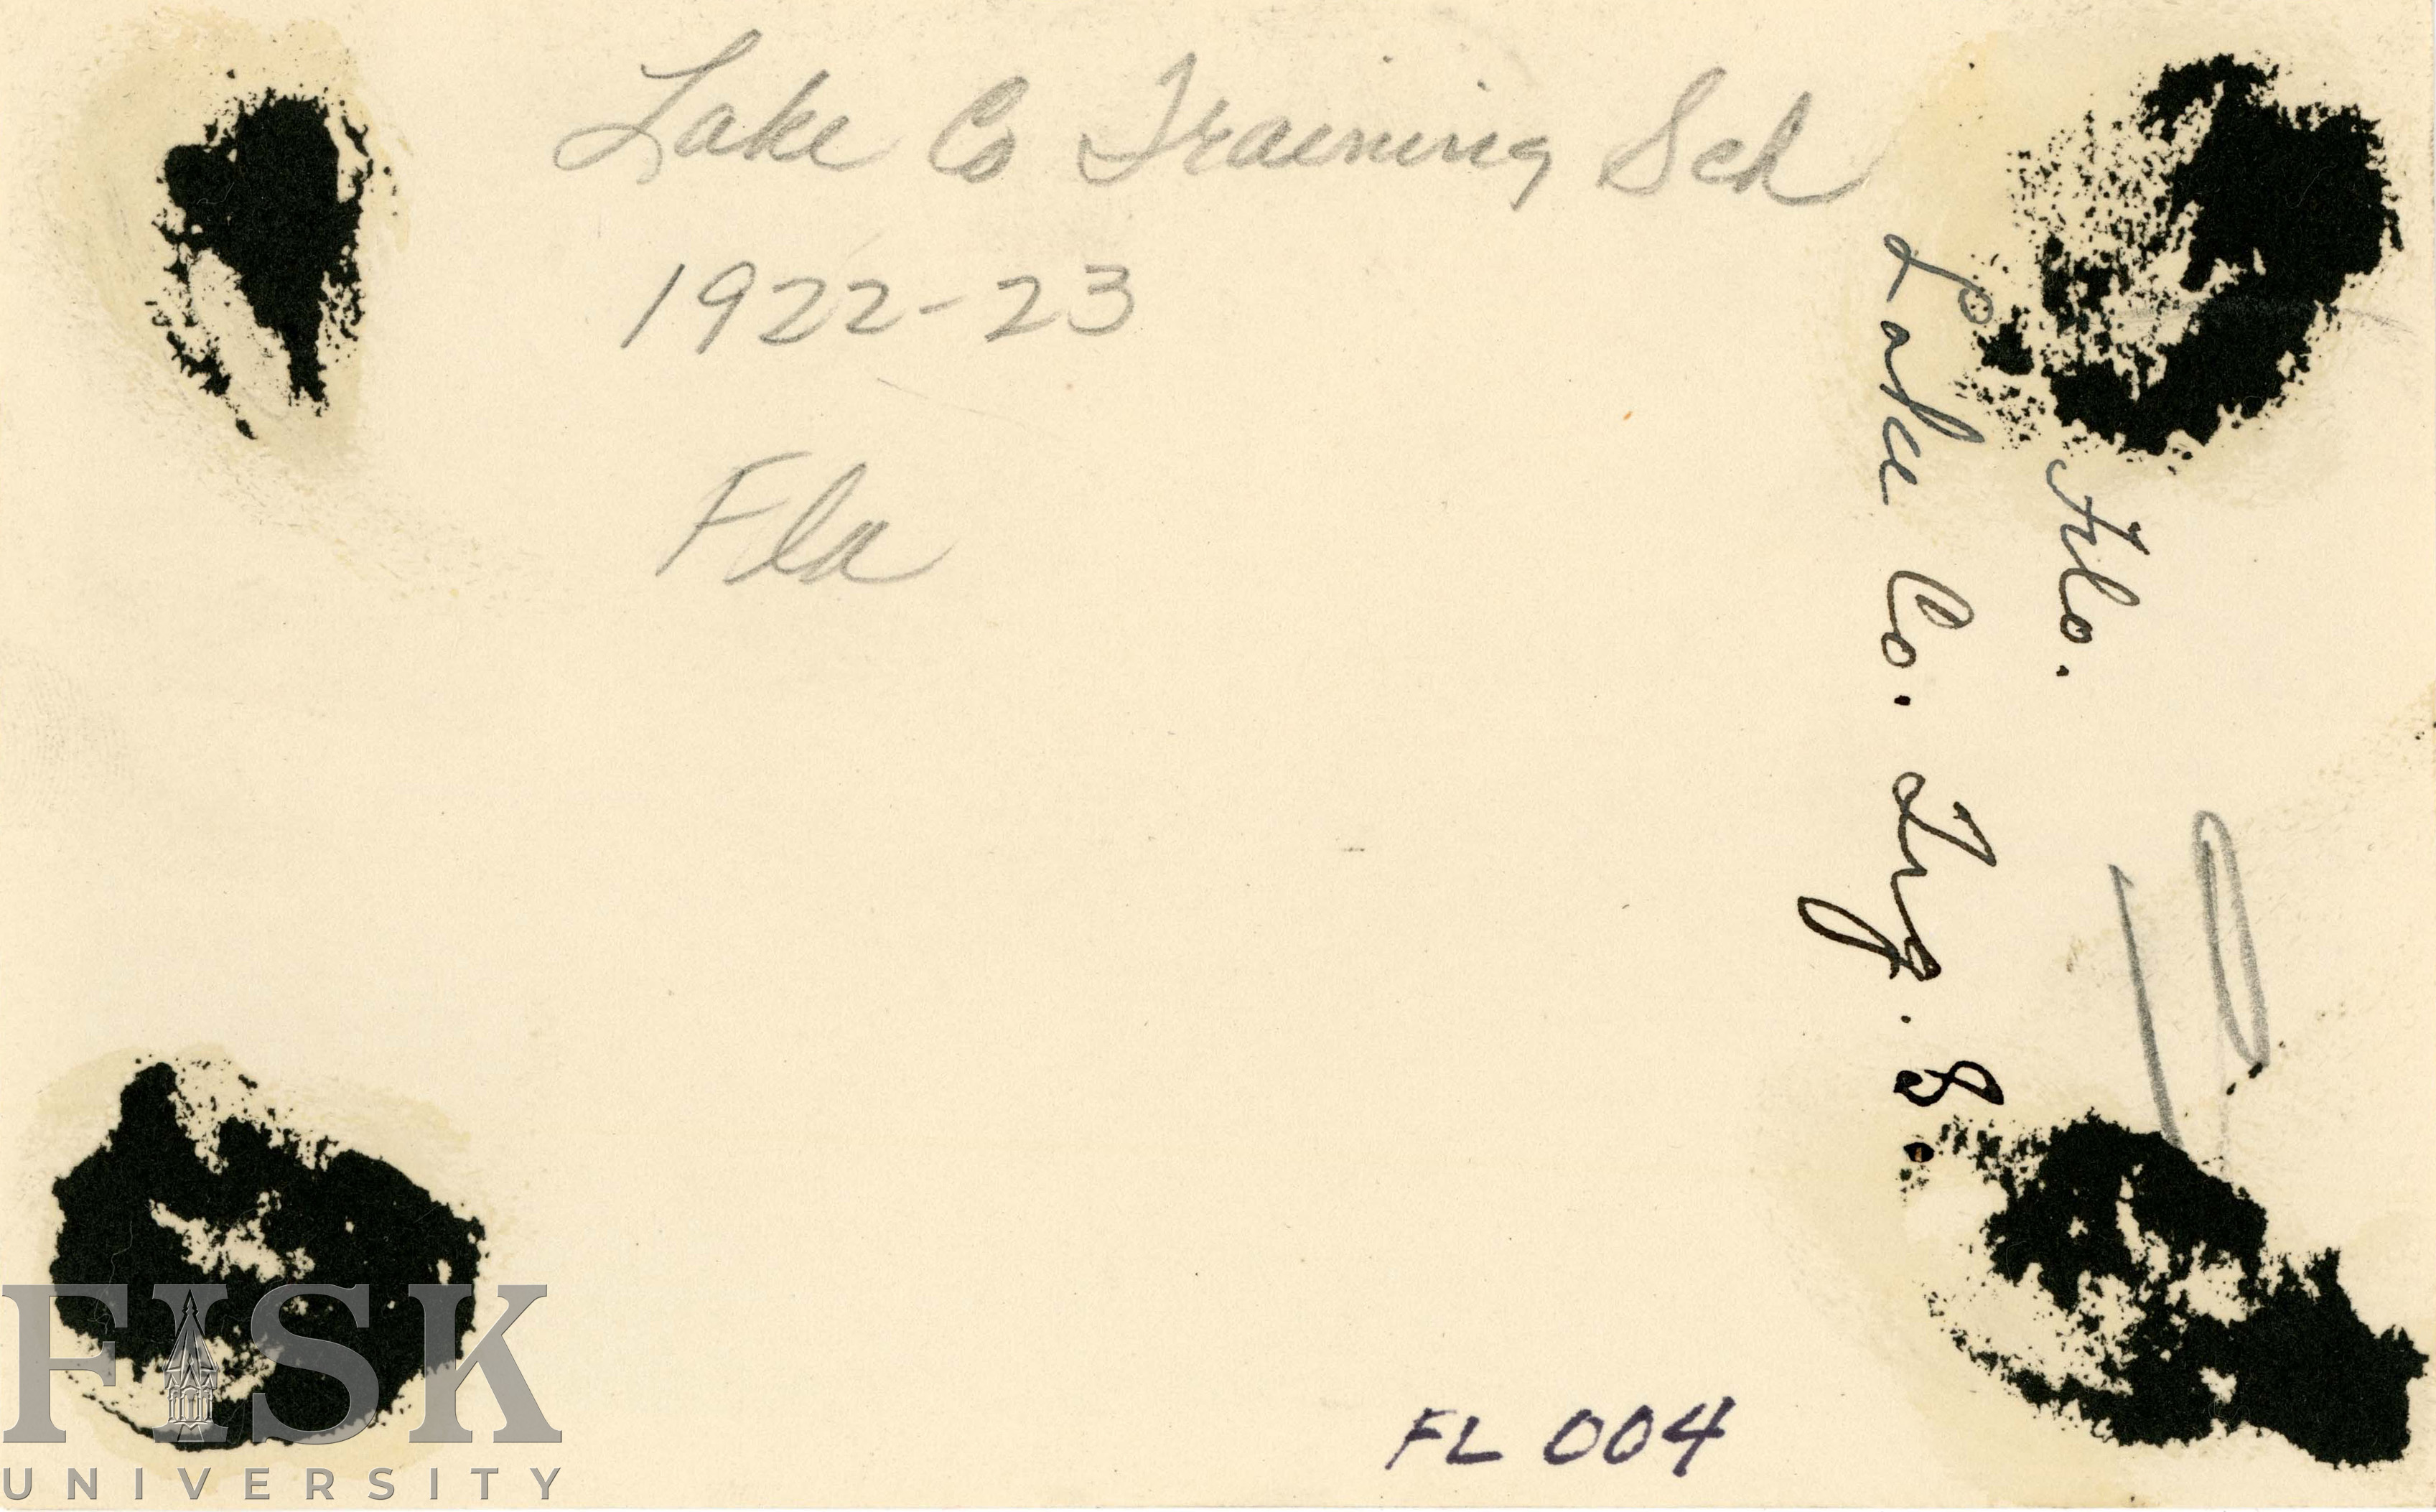 Lake Co Training Sch
1922-23
Fla
Flo.
Lake Co. Trg. S.
FL 004
FISK
UNIVERSITY